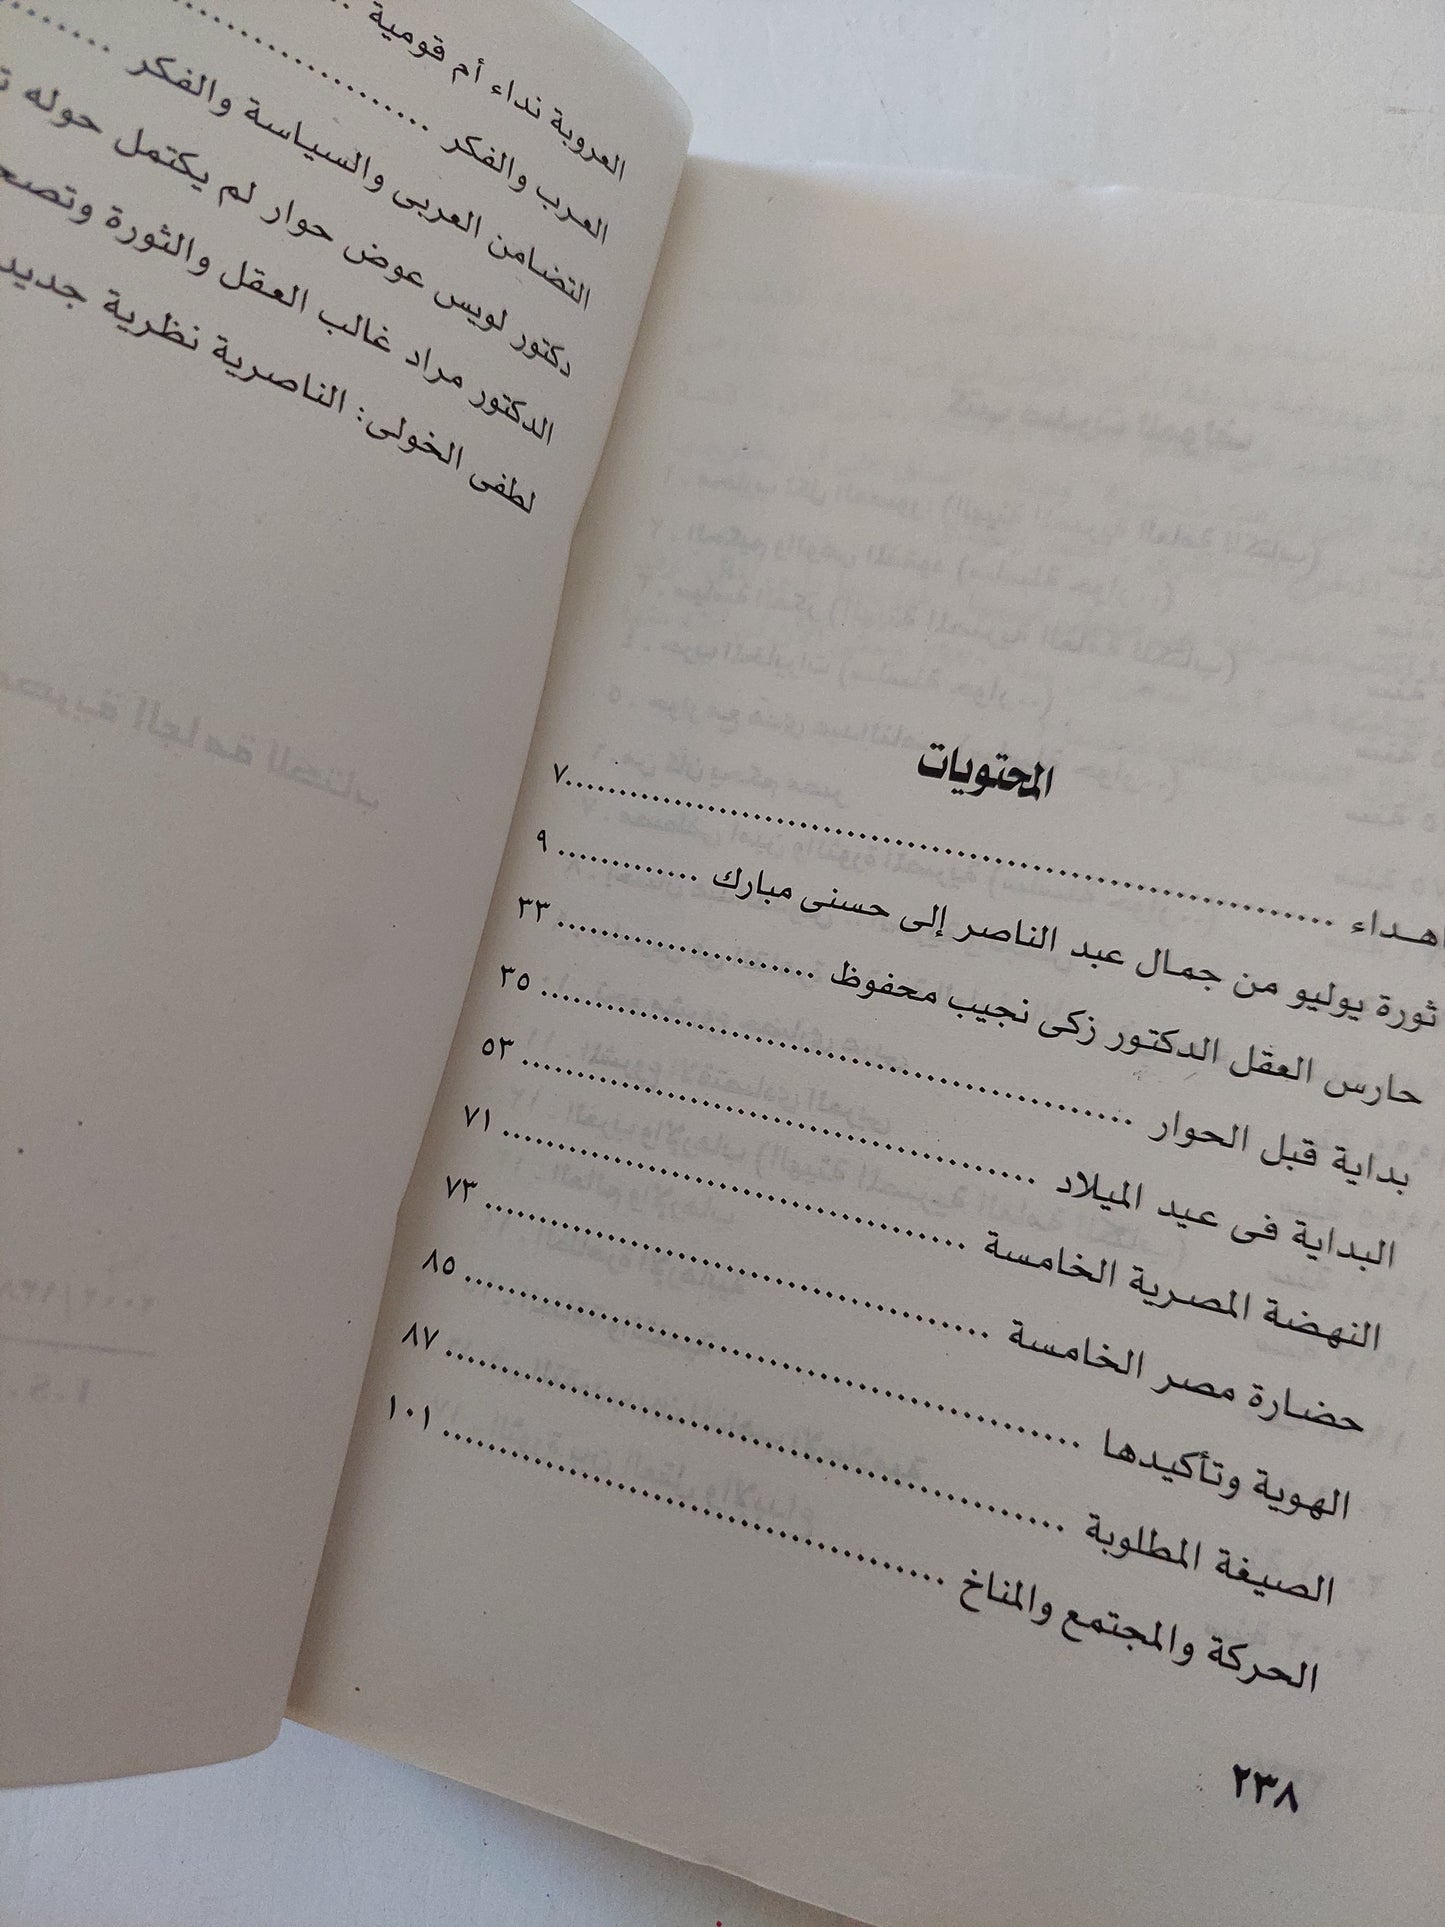 المحتويات
اهداء ........ ٧
ثورة يوليو من جمال عبد الناصر إلى حسنى مبارك ........ ٩
حارس العقل الدكتور زكى نجيب محفوظ ........ ٣٣
بداية قبل الحوار ........ ٣٥
البداية فى عيد الميلاد ........ ٥٣
النهضة المصرية الخامسة ........ ٧١
حضارة مصر الخامسة ........ ٧٣
الهوية وتأكيدها ........ ٨٥
الصيغة المطلوبة ........ ٨٧
الحركة والمجتمع والمناخ ........ ١٠١
٢٣٨
العروبة نداء أم قومية ........
العرب والفكر ........
التضامن العربى والسياسة والفكر ........
دكتور لويس عوض حوار لم يكتمل حوله
الدكتور مراد غالب العقل والثورة
لطفى الخولى: الناصرية نظرية